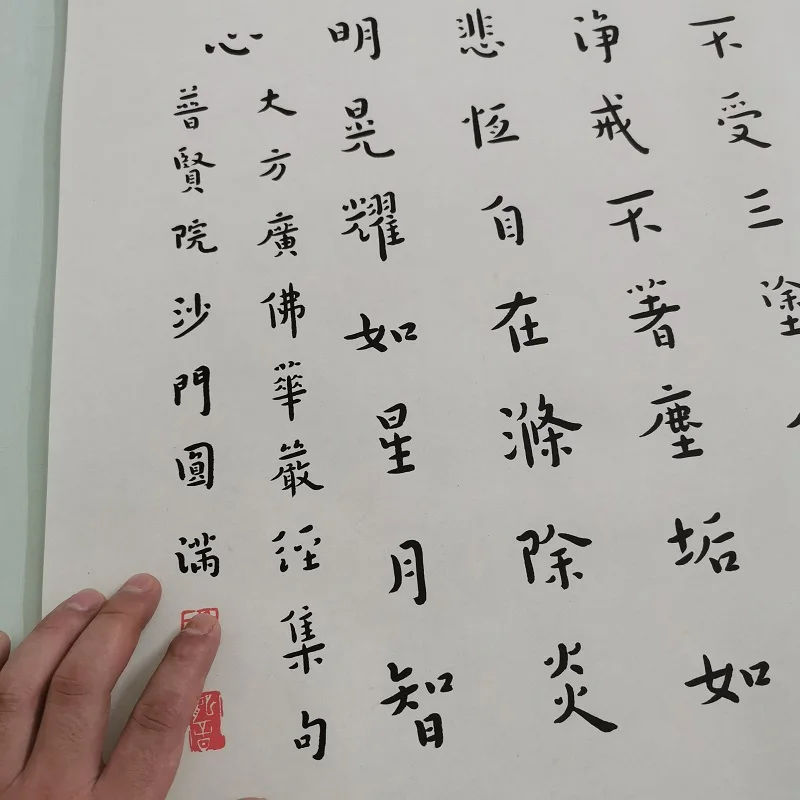 不受三塗
淨戒不著塵垢如
悲恆自在滌除炎
明晃耀如星月智
心
大方廣佛華嚴經集句
普賢院沙門圓滿